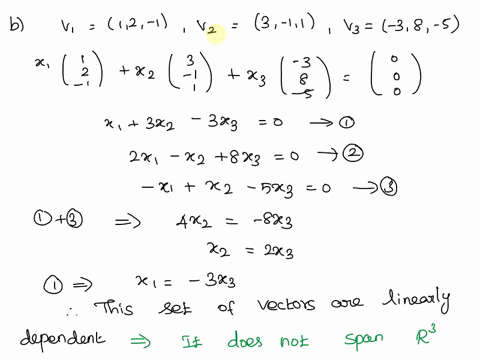 b) V₁ = (1,2,-1) , V₂ = (3,-1,1) , V₃ = (-3,8,-5)
x₁ (1 2 -1) + x₂ (3 -1 1) + x₃ (-3 8 -5) = (0 0 0)
x₁ + 3x₂ - 3x₃ = 0 → ①
2x₁ - x₂ + 8x₃ = 0 → ②
-x₁ + x₂ - 5x₃ = 0 → ③
① + ③ ⇒ 4x₂ = -8x₃
x₂ = 2x₃
① ⇒ x₁ = -3x₃
∴ This set of vectors are linearly
dependent ⇒ It does not span R³